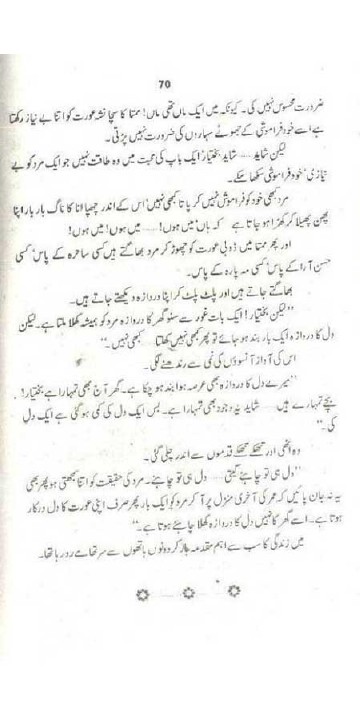 70
ضرورت محسوس نہیں کی۔ کیونکہ میں ایک ماں تھی ماں! ممتا کا سچا نشہ عورت کو اتنا بے نیاز رکھتا
ہے اسے خود فراموشی کے جھوٹے سہاروں کی ضرورت نہیں پڑتی۔
لیکن شاید ..... شاید بختیار' ایک باپ کی محبت میں وہ طاقت نہیں جو ایک مرد کو بے
نیازی' خود فراموشی سکھا سکے۔
مرد بھی خود کو فراموش نہیں کر پاتا کبھی نہیں' اس کے اندر چھپا انا کا ناگ بار بار اپنا
پھن پھیلا کر کھڑا ہو جاتا ہے کہ ہاں' میں ہوں! ..... میں ہوں! میں ہوں!
اور پھر ممتا میں ڈوبی عورت کو چھوڑ کر مرد بھاگتے ہیں کسی ساحرہ کے پاس' کسی
حسن آرا کے پاس' کسی مہ پارہ کے پاس۔
بھاگتے جاتے ہیں اور پلٹ پلٹ کر اپنا دروازہ دیکھتے جاتے ہیں۔
"لیکن بختیار! ایک بات غور سے سنو گھر کا دروازہ مرد کو ہمیشہ کھلا ملتا ہے۔ لیکن
دل کا دروازہ ایک بار بند ہو جائے تو پھر کبھی نہیں کھلتا ..... کبھی نہیں۔"
اس کی آواز آنسوؤں کی نمی سے رندھنے لگی۔
"میرے دل کا دروازہ بھی عرصہ ہوا بند ہو چکا ہے۔ گھر آج بھی تمہارا ہے بختیار!
بچے تمہارے ہیں ..... شاید یہ وجود بھی تمہارا ہے۔ بس ایک دل کی کمی ہو گئی ہے ایک دل
کی۔"
وہ اٹھی اور تھکے تھکے قدموں سے اندر چلی گئی۔
"دل ہی تو چاہئے ..... دل ہی تو چاہئے۔ مرد کی حقیقت کو اتنا سمجھتی ہو پھر بھی
یہ نہ جان پائیں کہ عمر کی آخری منزل پر آ کر مرد کو ایک بار پھر صرف اپنی عورت کا دل درکار
ہوتا ہے۔ اسے گھر کا نہیں دل کا دروازہ کھلا چاہئے ہوتا ہے۔"
میں زندگی کا سب سے اہم مقدمہ ہار کر دونوں ہاتھوں سے سر تھامے رو رہا تھا۔